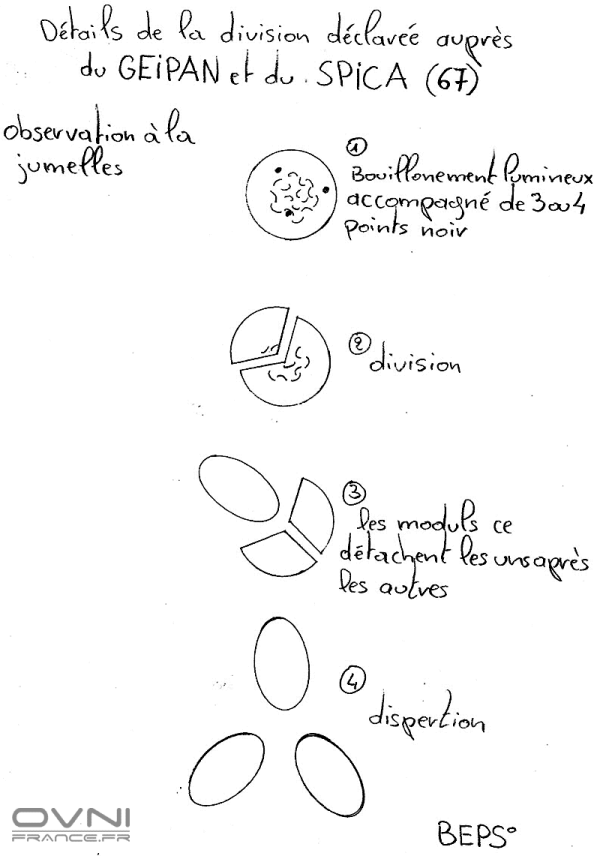 Détails de la division déclarée auprès
du GEiPAN et du SPiCA (67)
observation à la
jumelles
1
Bouillonement lumineux
accompagné de 3 ou 4
points noir
2
division
3
les moduls ce
détachent les uns après
les autres
4
dispertion
OVNI
FRANCE.FR
BEPS°